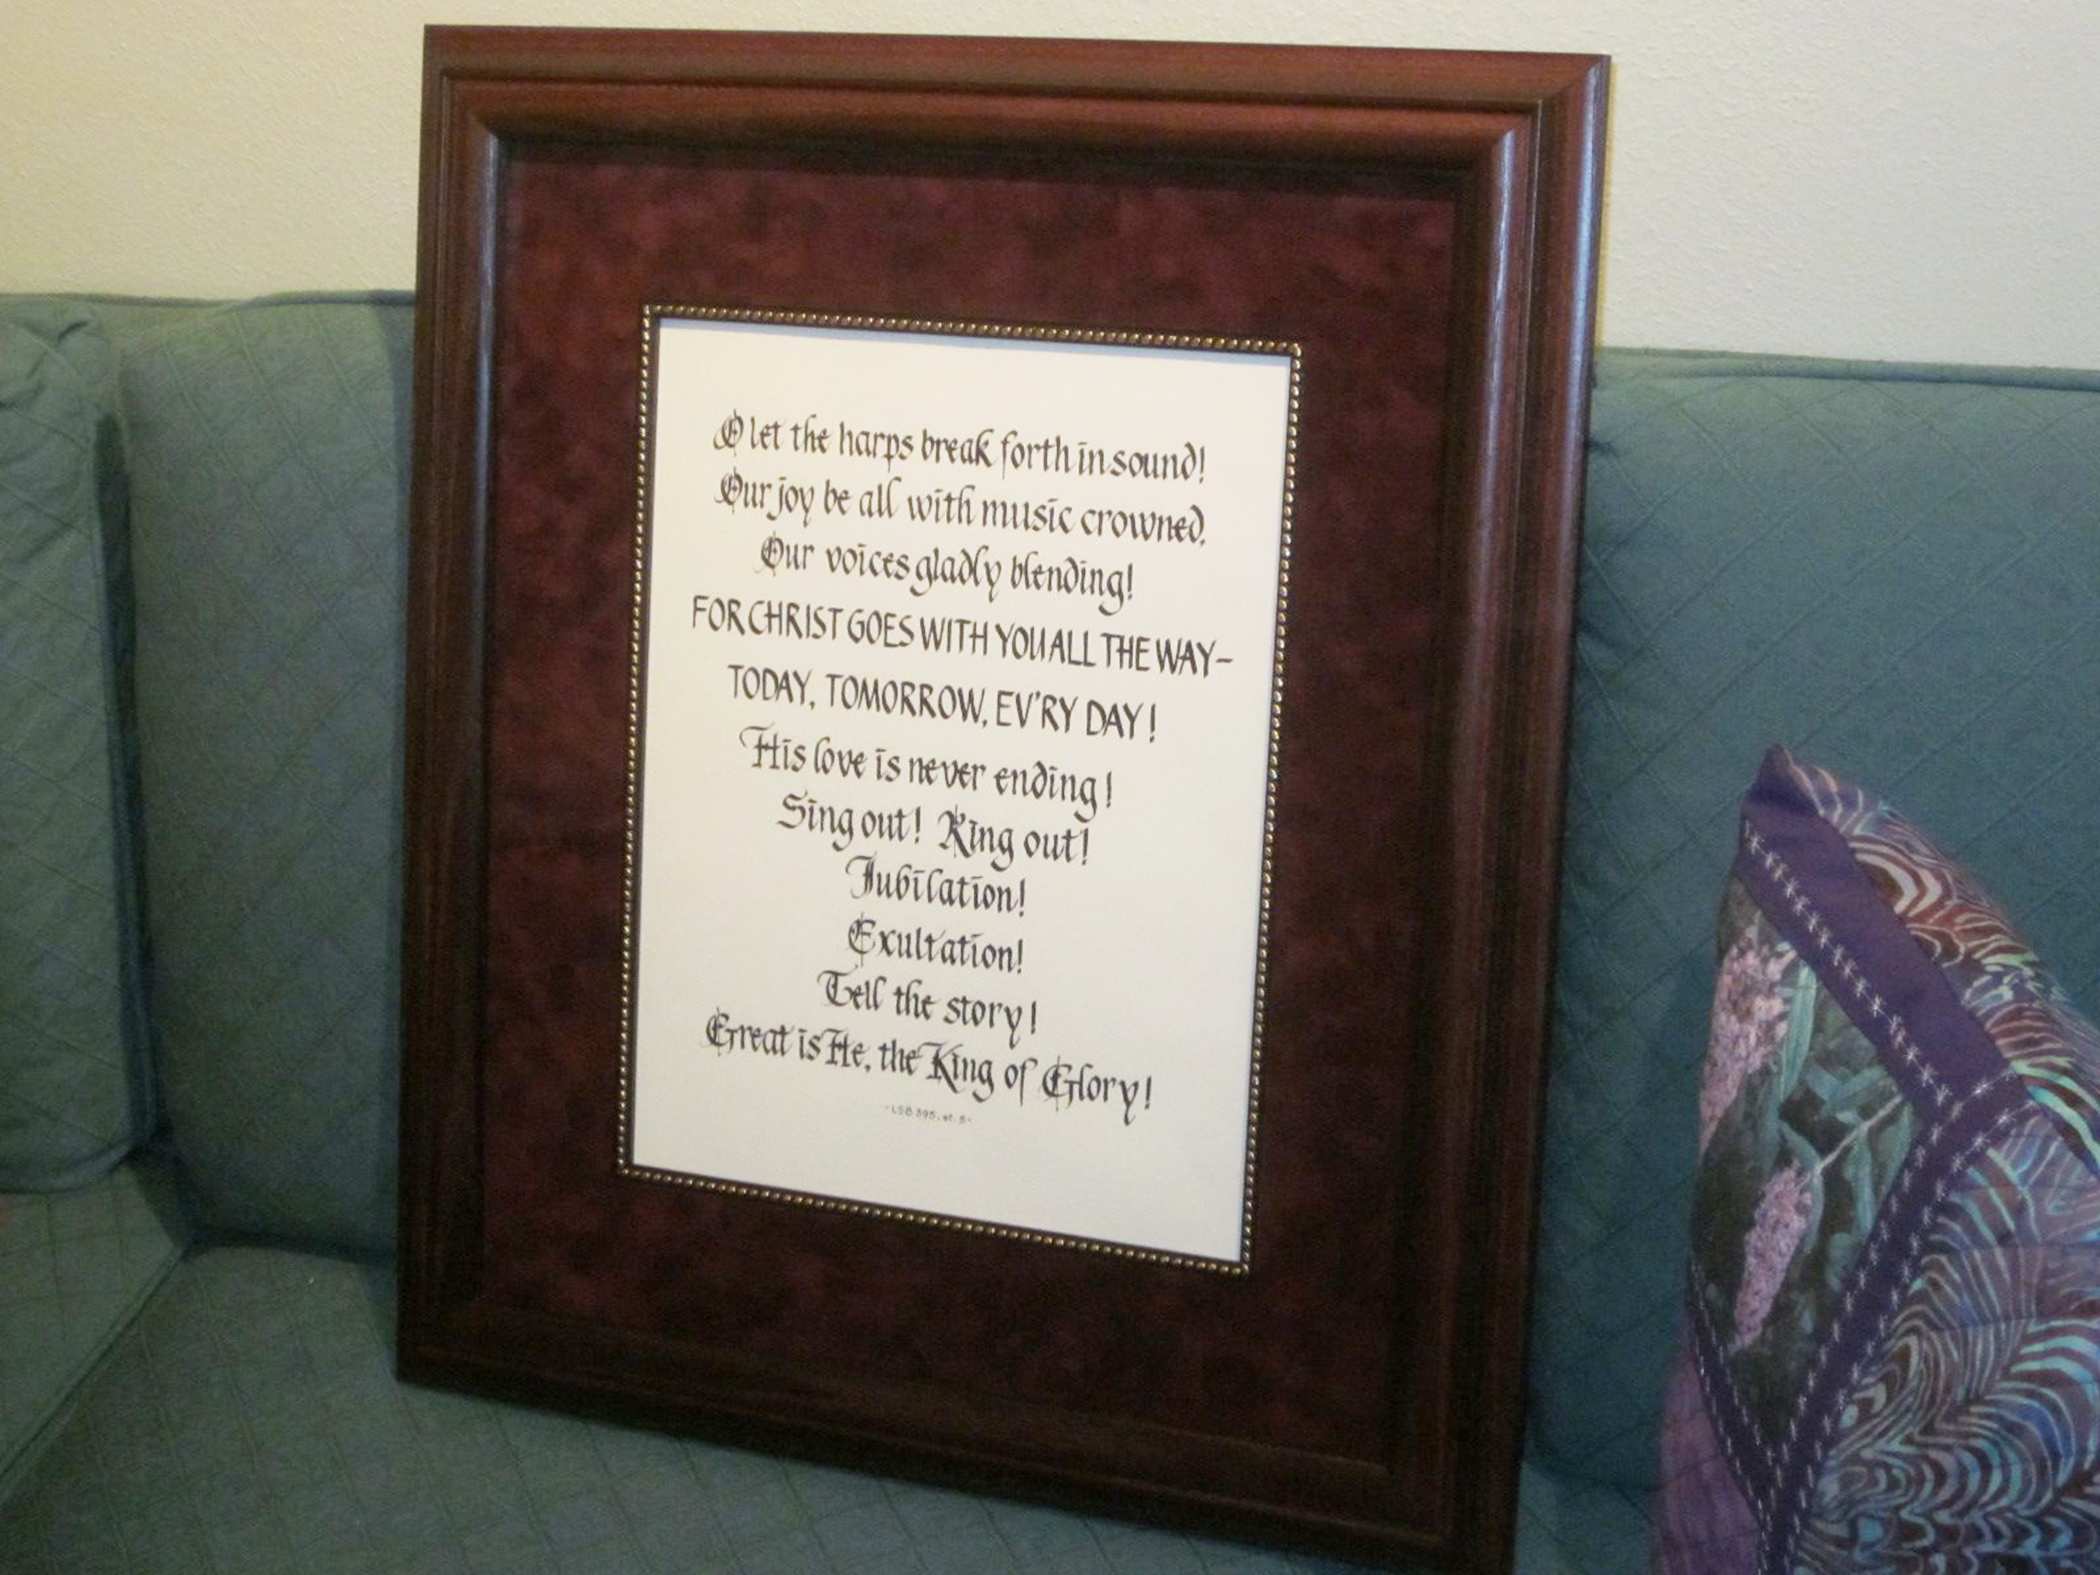 O let the harps break forth in sound!
Our joy be all with music crowned,
Our voices gladly blending!
FOR CHRIST GOES WITH YOU ALL THE WAY–
TODAY, TOMORROW, EV'RY DAY!
His love is never ending!
Sing out! Ring out!
Jubilation!
Exultation!
Tell the story!
Great is He, the King of Glory!
-LSB 395, st. 5-